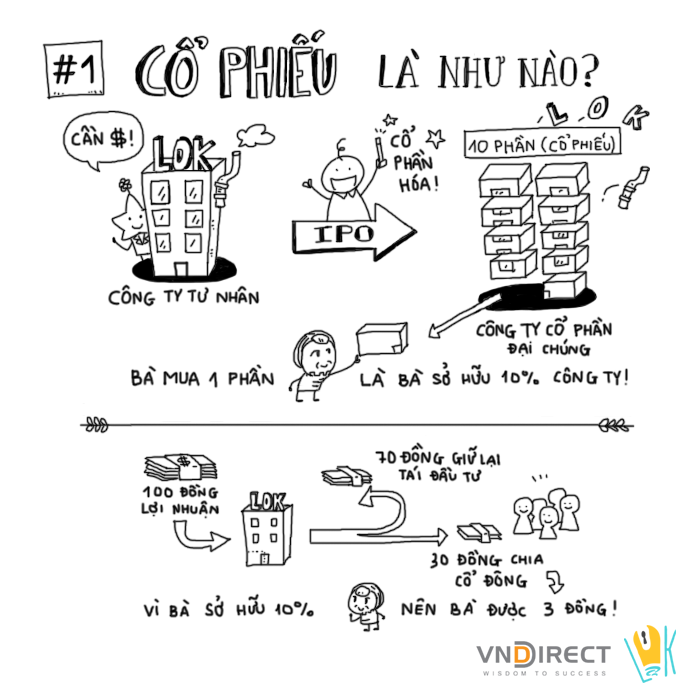 #1 CỔ PHIẾU LÀ NHƯ NÀO?
CẦN $!
LOK
CỔ
PHẦN
HÓA!
IPO
LOK
10 PHẦN (CỔ PHIẾU)
CÔNG TY TƯ NHÂN
CÔNG TY CỔ PHẦN
ĐẠI CHÚNG
BÀ MUA 1 PHẦN LÀ BÀ SỞ HỮU 10% CÔNG TY!
$
100 ĐỒNG
LỢI NHUẬN
LOK
70 ĐỒNG GIỮ LẠI
TÁI ĐẦU TƯ
30 ĐỒNG CHIA
CỔ ĐÔNG
VÌ BÀ SỞ HỮU 10% NÊN BÀ ĐƯỢC 3 ĐỒNG!
VNDIRECT
WISDOM TO SUCCESS
LOK